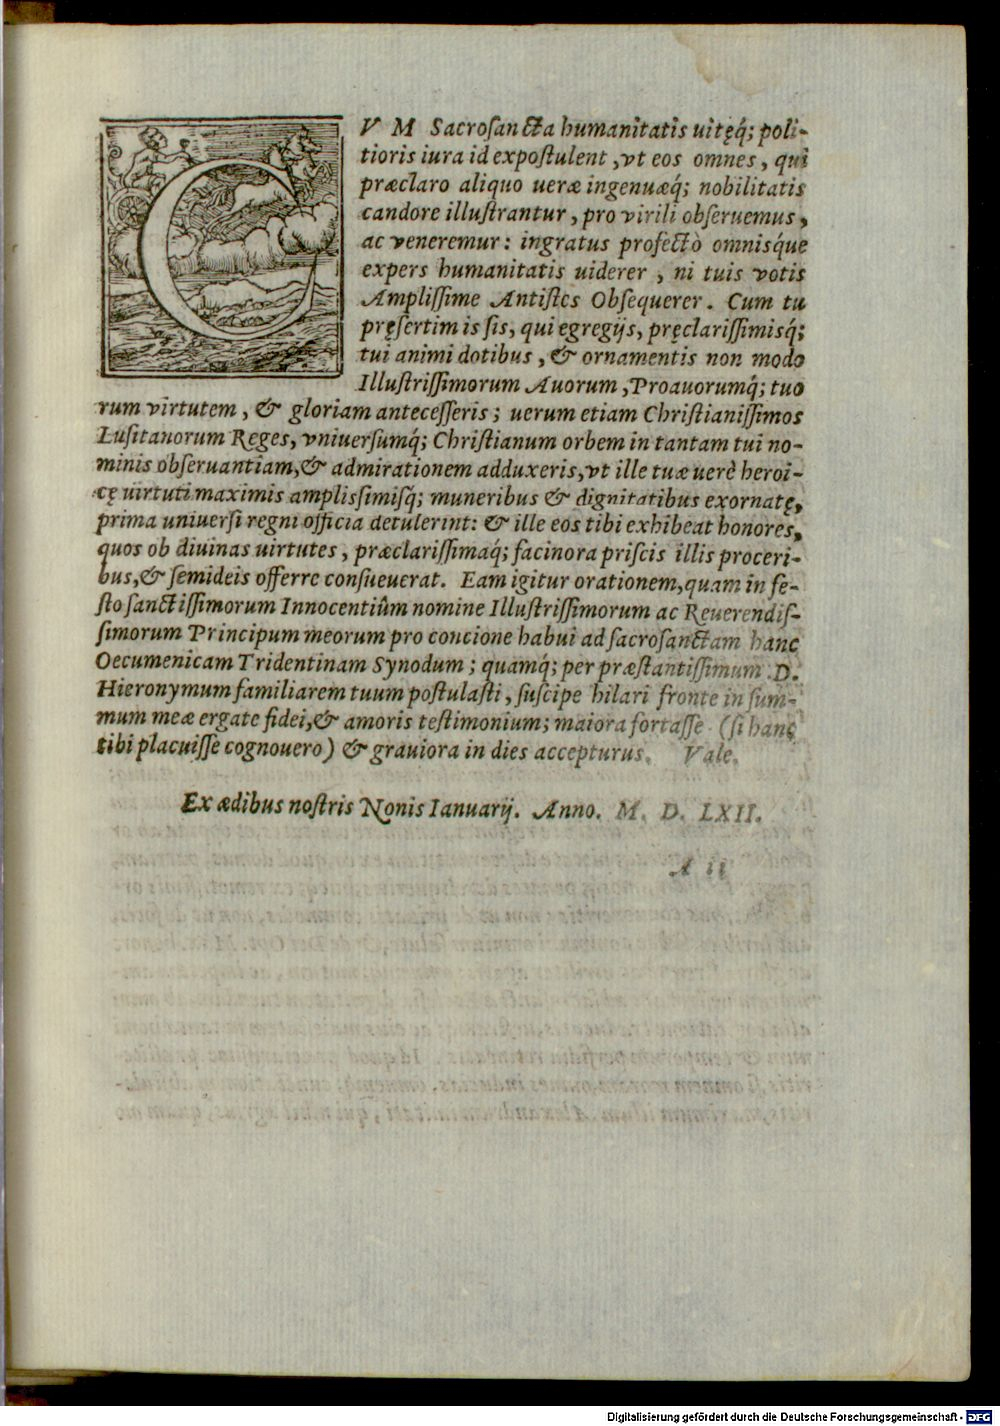 CVM Sacrosancta humanitatis uitęq́; poli-
tioris iura id expostulent, vt eos omnes, qui
præclaro aliquo ueræ ingenuæq́; nobilitatis
candore illustrantur, pro virili obseruemus,
ac veneremur: ingratus profectò omnisq́ue
expers humanitatis uiderer, ni tuis votis
Amplissime Antistes Obsequerer. Cum tu
pręsertim is sis, qui egregijs, pręclarissimisq́;
tui animi dotibus, & ornamentis non modo
Illustrissimorum Auorum, Proauorumq́; tuo
rum virtutem, & gloriam antecesseris; uerum etiam Christianissimos
Lusitanorum Reges, vniuersumq́; Christianum orbem in tantam tui no-
minis obseruantiam, & admirationem adduxeris, vt ille tuæ uerè heroi-
cę uirtuti maximis amplissimisq́; muneribus & dignitatibus exornatę,
prima uniuersi regni officia detulerint: & ille eos tibi exhibeat honores,
quos ob diuinas uirtutes, præclarissimaq́; facinora priscis illis proceri-
bus, & semideis offerre consueuerat. Eam igitur orationem, quam in fe-
sto sanctissimorum Innocentiûm nomine Illustrissimorum ac Reuerendis-
simorum Principum meorum pro concione habui ad sacrosanctam hanc
Oecumenicam Tridentinam Synodum; quamq́; per præstantissimum D.
Hieronymum familiarem tuum postulasti, suscipe hilari fronte in sum-
mum meæ erga te fidei, & amoris testimonium; maiora fortasse (si hanc
tibi placuisse cognouero) & grauiora in dies accepturus. Vale.
Ex ædibus nostris Nonis Ianuarij. Anno. M. D. LXII.
A ii
Digitalisierung gefördert durch die Deutsche Forschungsgemeinschaft - DFG